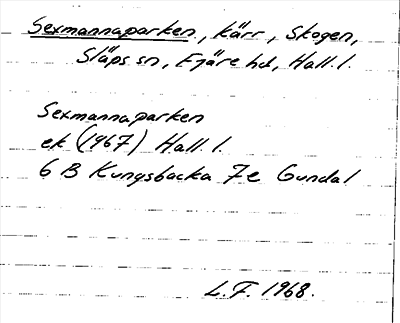 Sexmannaparken, kärr, Skogen,
Släps sn, Fjäre hd, Hall. l.
Sexmannaparken
ek (1967) Hall. l.
6 B Kungsbacka 7e Gundal
L.F. 1968.